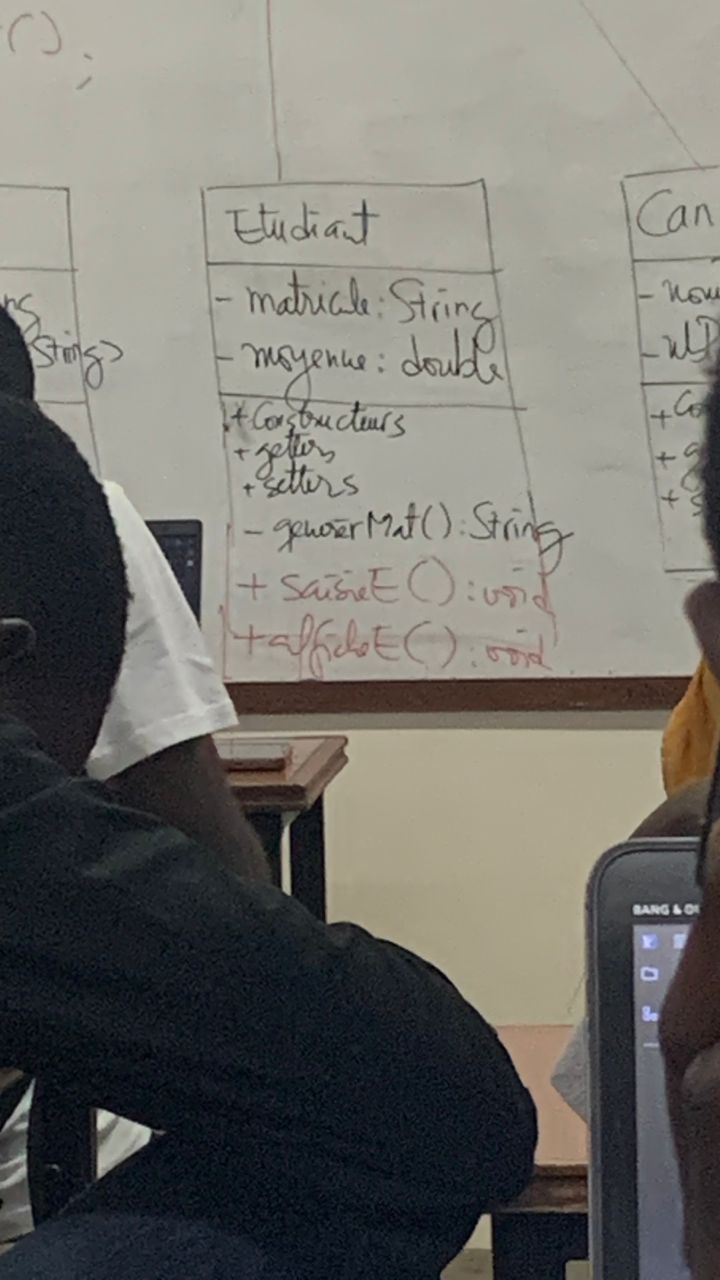 ();
Etudiant
- matricule : String
- moyenne : double
+ Constructeurs
+ getters
+ setters
- generer Mat() : String
+ saisieE() : void
+ afficheE() : void
String>
Can
- nom
+ Co
+ g
+ s
BANG & OL